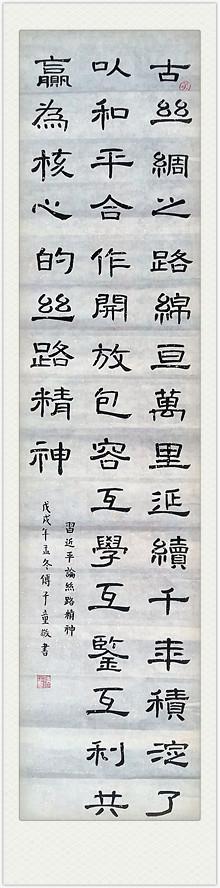 古絲綢之路綿亘萬里延續千年積淀了
以和平合作開放包容互學互鑒互利共
贏為核心的絲路精神
習近平論絲路精神
戊戌年孟冬傅子童敬書